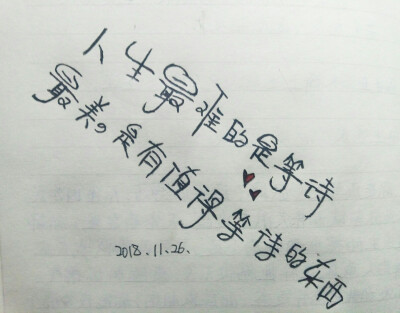 人生最难的是等待
最美的是有值得等待的东西
2018.11.26.